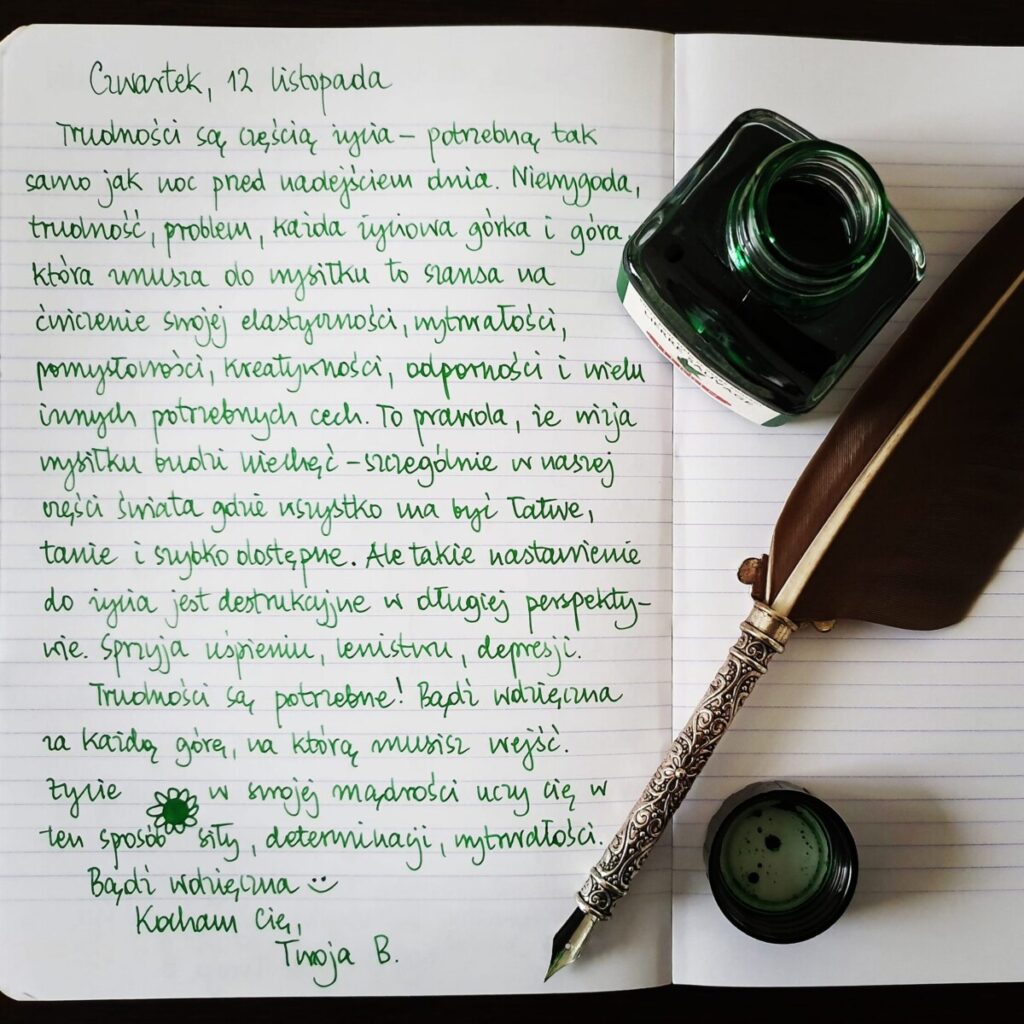 Czwartek, 12 listopada
Trudności są częścią życia – potrzebną tak
samo jak noc przed nadejściem dnia. Niewygoda,
trudność, problem, każda życiowa górka i góra,
która zmusza do wysiłku to szansa na
ćwiczenie swojej elastyczności, wytrwałości,
pomysłowości, kreatywności, odporności i wielu
innych potrzebnych cech. To prawda, że wizja
wysiłku budzi niechęć – szczególnie w naszej
części świata gdzie wszystko ma być łatwe,
tanie i szybko dostępne. Ale takie nastawienie
do życia jest destrukcyjne w długiej perspekty-
wie. Sprzyja uśpieniu, lenistwu, depresji.
Trudności są potrzebne! Bądź wdzięczna
za każdą górę, na którą musisz wejść.
Życie w swojej mądrości uczy cię w
ten sposób siły, determinacji, wytrwałości.
Bądź wdzięczna
Kocham Cię,
Twoja B.
LIERRE SAUVAGE